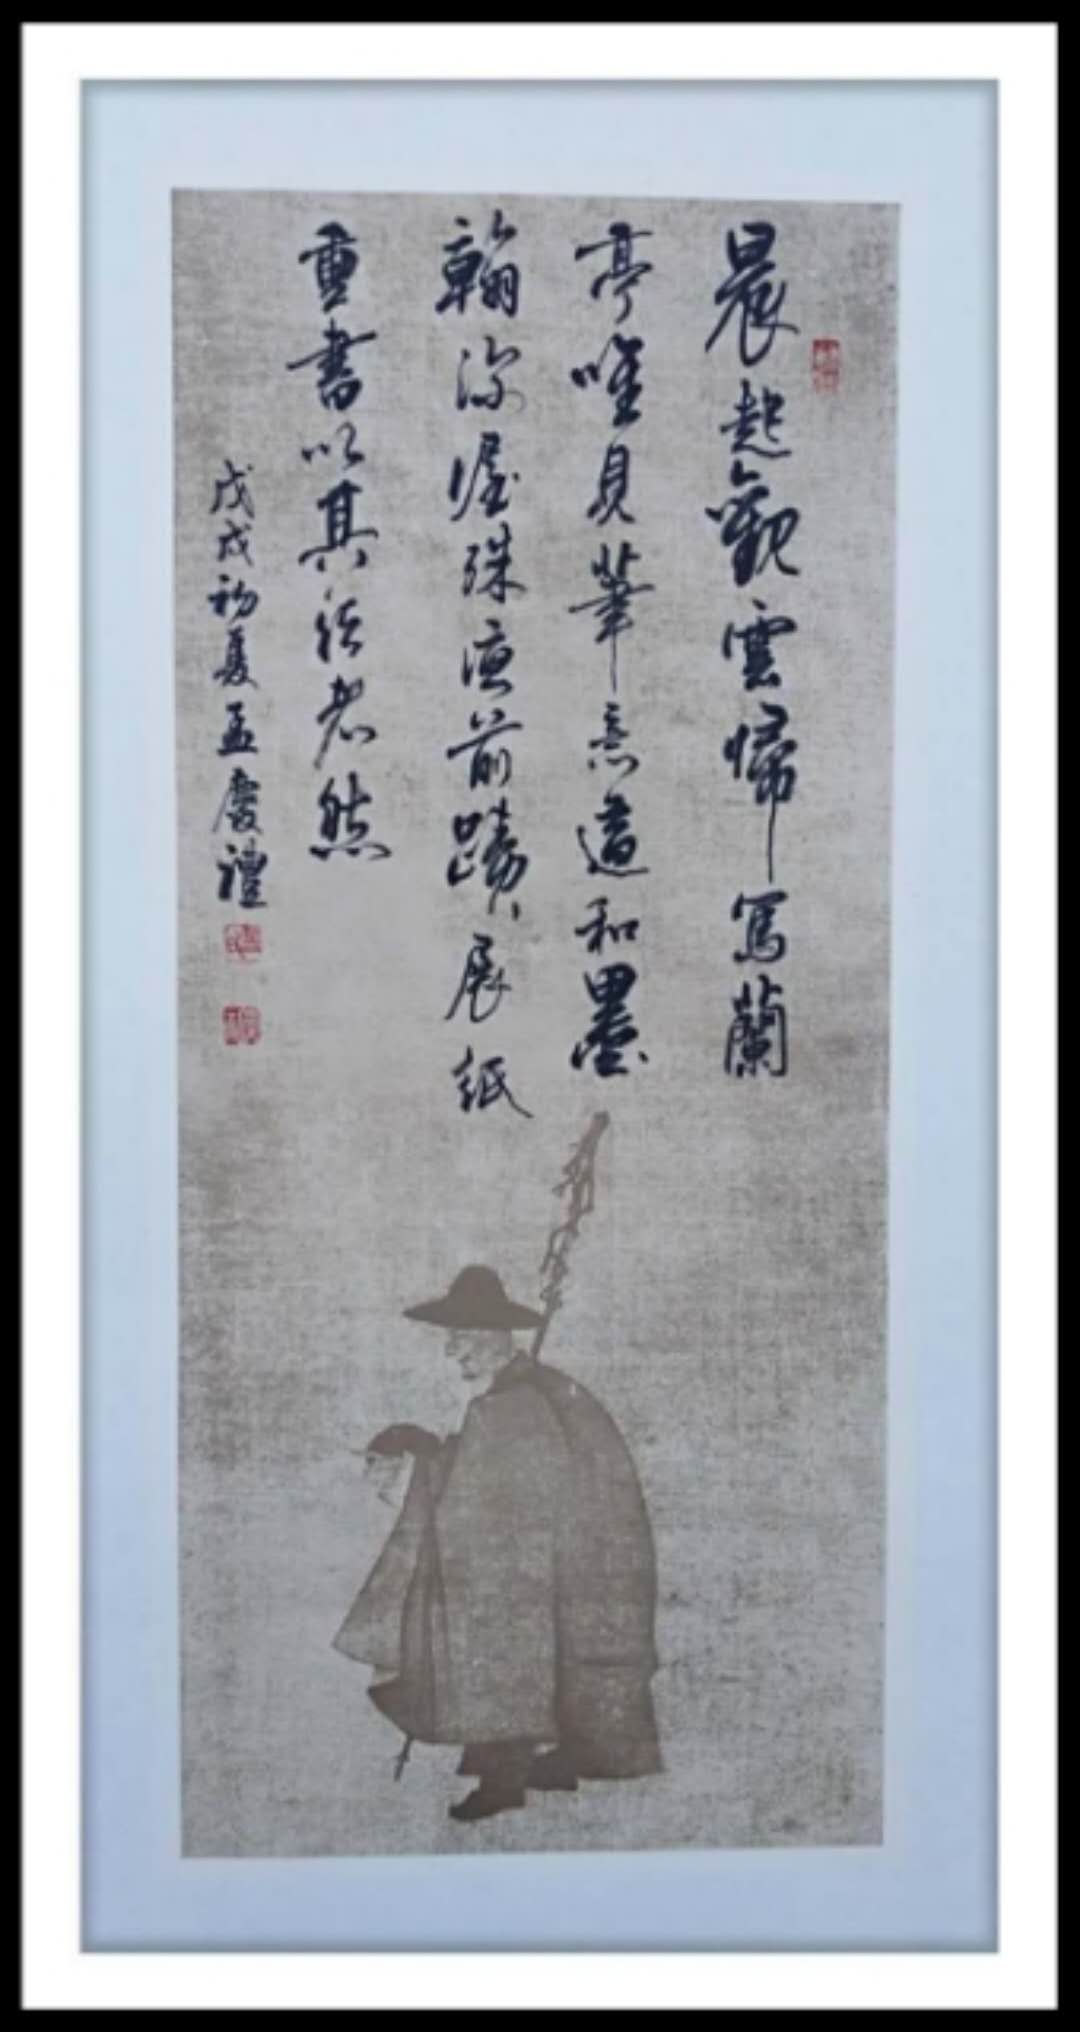 晨起觀雲歸寫蘭
亭唯見筆意遒和墨
翰深渥殊前蹟展紙
重書以其老然
戊戌初夏孟慶禮